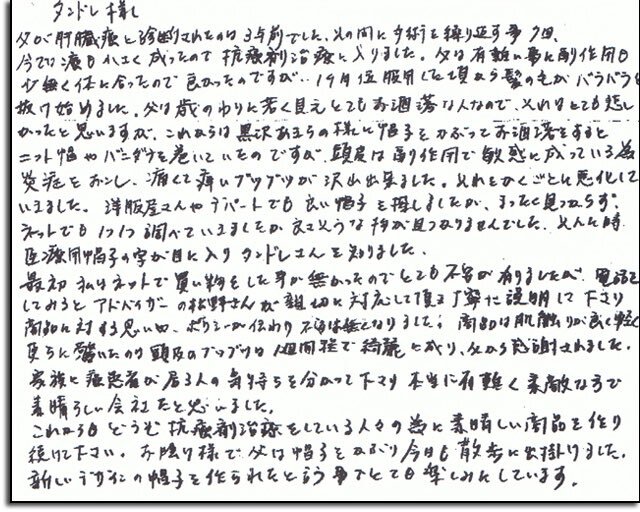 タンドレ様
父が肝臓癌と診断されたのは3年前でした。その間に手術を繰り返す事7回、
今では癌も小さく成ったので抗癌剤治療に入りました。父は有難い事に副作用も
少無く体に合ったので良かったのですが‥1ヶ月位服用した頃から髪の毛がバラバラと
抜け始めました。父は歳のわりに若く見えとてもお洒落な人なので、それはとても悲し
かったと思いますが、これからは黒沢あきらの様に帽子をかぶってお洒落をすると
ニット帽やバンダナを巻いていたのですが、頭皮は副作用で敏感に成っている為
炎症をおこし、痛くて痒いブツブツが沢山出来ました。それをかくごとに悪化して
いきました。洋服屋さんやデパートでも良い帽子を探しましたが、まったく見つからず、
ネットでも1つ1つ調べていましたが良さそうな物が見つかりませんでした。そんな時
医療用帽子の字が目に入りタンドレさんを知りました。
最初私はネットで買い物をした事が無かったのでとても不安が有りましたが、電話を
してみるとアドバイザーの松野さんが親切に対応して頂き丁寧に説明して下さり
商品に対する思いや、ポリシーが伝わり不安は無くなりました。商品は肌触りが良く軽く
更に驚いたのは頭皮のブツブツは1週間程で綺麗に成り、父から感謝されました。
家族に癌患者が居る人の気持ちを分かって下さり本当に有難く素敵な事で
素晴らしい会社だと思いました。
これからもどうぞ抗癌剤治療をしている人々の為に素晴しい商品を作り
続けて下さい。お陰り様で父は帽子をかぶり今日も散歩に出掛けました。
新しいデザインの帽子を作られたと言う事でとても楽しみにしています。